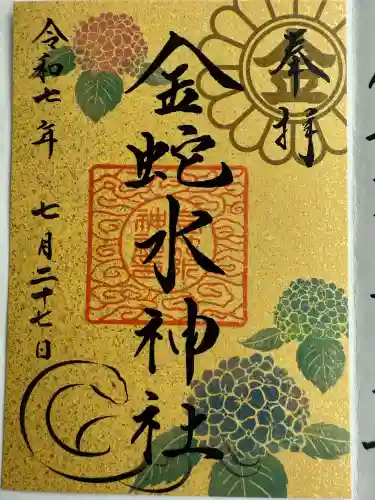 奉拝
金蛇水神社
令和七年 七月二十七日
金